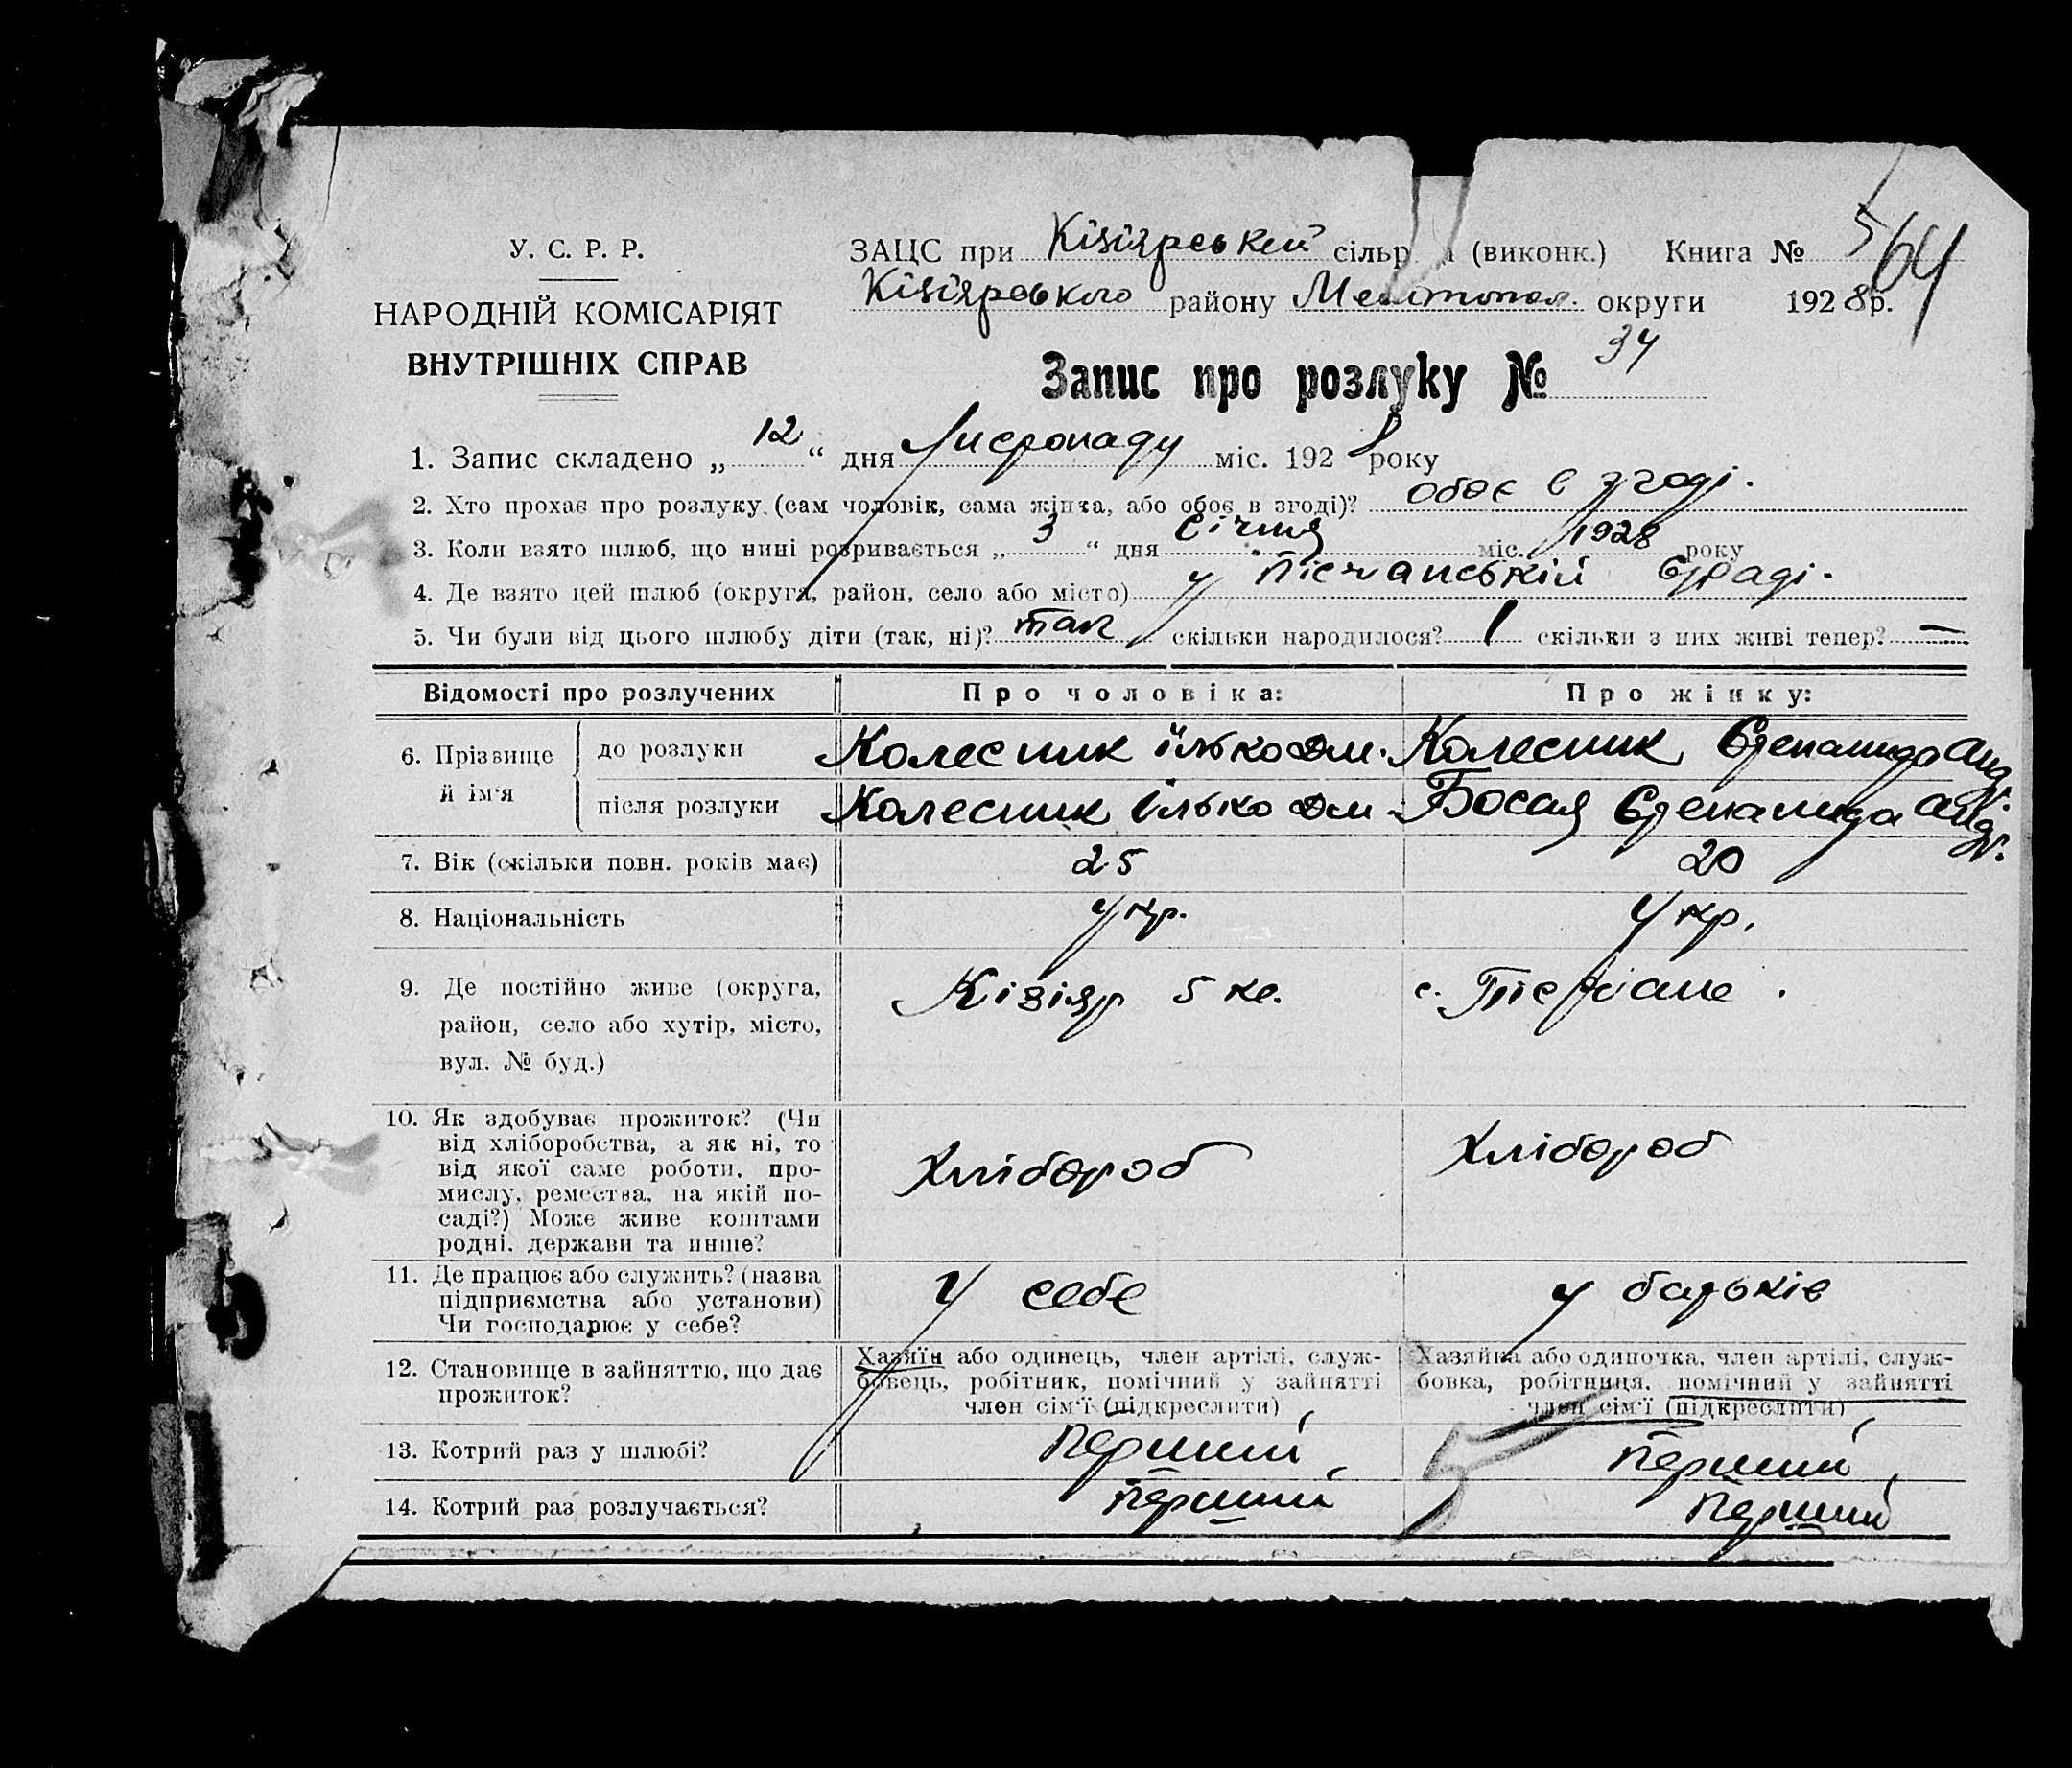 У. С. Р. Р.
НАРОДНІЙ КОМІСАРІЯТ
ВНУТРІШНІХ СПРАВ
ЗАЦС при Кізіярській сільр (виконк.) Книга № 5 64
Кізіярського району Мелітопол. округи 1928 р.
Запис про розлуку № 34
1. Запис складено „ 12 “ дня Листопаду міс. 1928 року
2. Хто прохає про розлуку (сам чоловік, сама жінка, або обоє в згоді)? обоє в згоді.
3. Коли взято шлюб, що нині розривається „ 3 “ дня Січня міс. 1928 року
4. Де взято цей шлюб (округа, район, село або місто) у Пісчанській
5. Чи були від цього шлюбу діти (так, ні)? так скільки народилося? 1 скільки з них живі тепер? —
Відомості про розлучених Про чоловіка: Про жінку:
6. Прізвище й ім'я
до розлуки Колесник Ілько Дм. Колесник Андр.
після розлуки Колесник Ілько Дм. Босая Андр.
7. Вік (скільки повн. років має) 25 20
8. Національність Укр. Укр.
9. Де постійно живе (округа, Кізіяр 5 с.
район, село або хутір, місто,
вул. № буд.)
10. Як здобуває прожиток? (Чи
від хліборобства, а як ні, то Хлібороб Хлібороб
від якої саме роботи, про-
мислу, ремества, на якій по-
саді?) Може живе коштами
родні, держави та инше?
11. Де працює або служить? (назва
підприємства або установи) у себе у батьків
Чи господарює у себе?
12. Становище в зайняттю, що дає
прожиток?
Хазяїн або одинець, член артілі, служ-
бовець, робітник, помічний у зайнятті
член сім'ї (підкреслити)
Хазяйка або одиночка, член артілі, служ-
бовка, робітниця, помічний у зайнятті
член сім'ї (підкреслити)
13. Котрий раз у шлюбі? перший перший
14. Котрий раз розлучається? перший перший